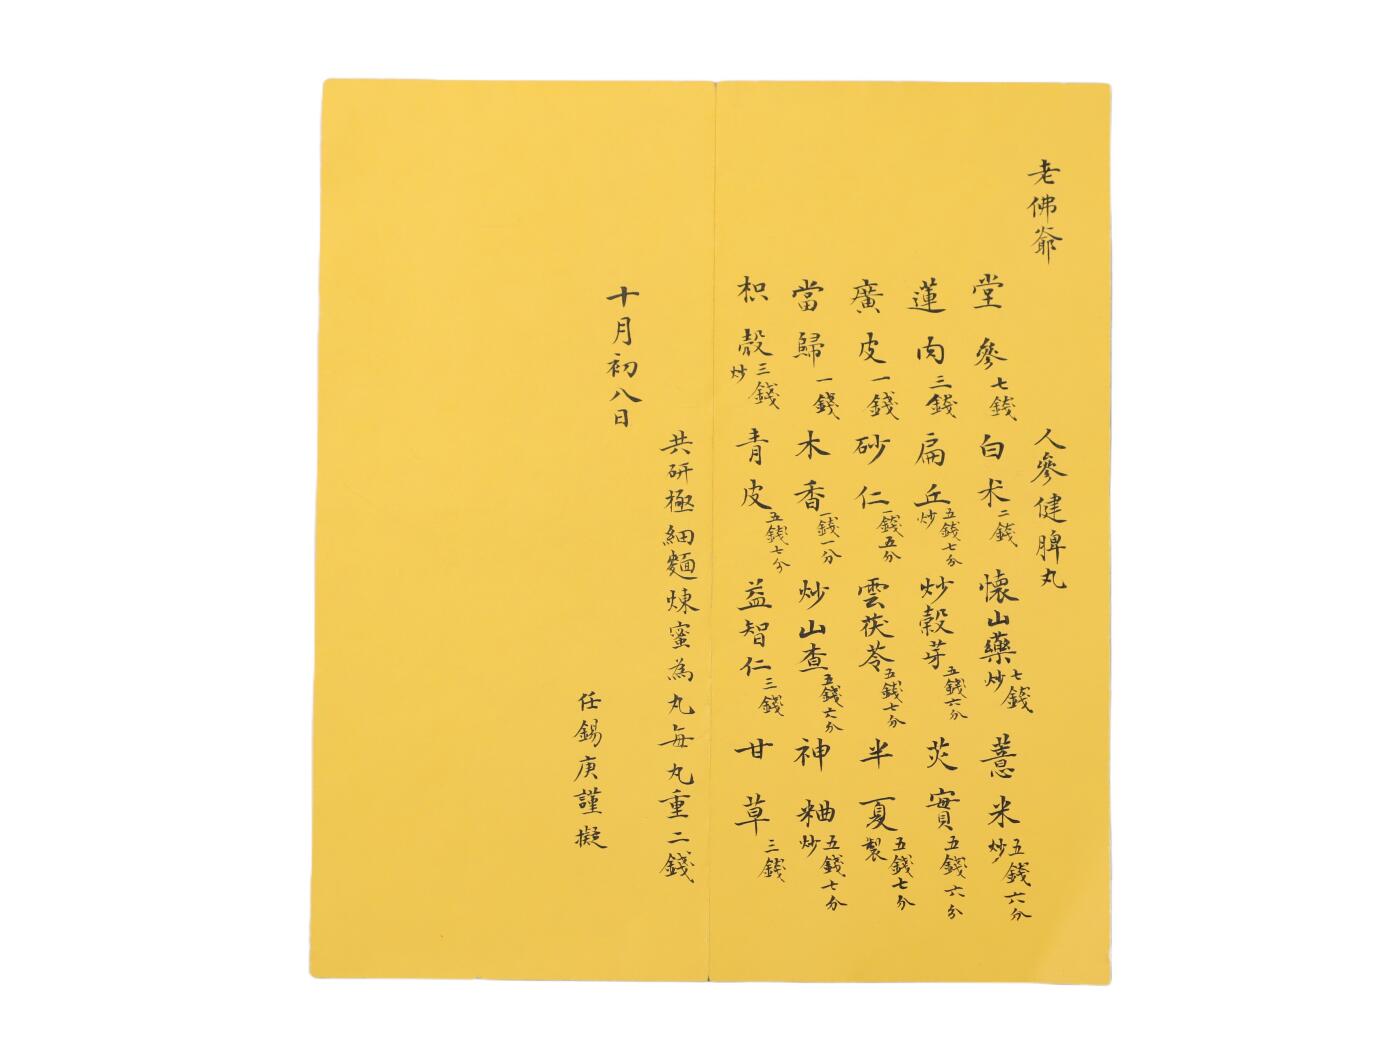 老佛爺
人參健脾丸
堂參七錢 白朮二錢 懷山藥炒七錢 薏米炒五錢六分
蓮肉三錢 扁丘炒五錢七分 炒穀芽五錢六分 芡實五錢六分
廣皮一錢 砂仁一錢五分 雲茯苓五錢七分 半夏製五錢七分
當歸一錢 木香一錢一分 炒山查五錢六分 神粬炒五錢七分
枳殼炒三錢 青皮五錢七分 益智仁三錢 甘草三錢
共研極細麵煉蜜為丸每丸重二錢
十月初八日
任錫庚謹擬